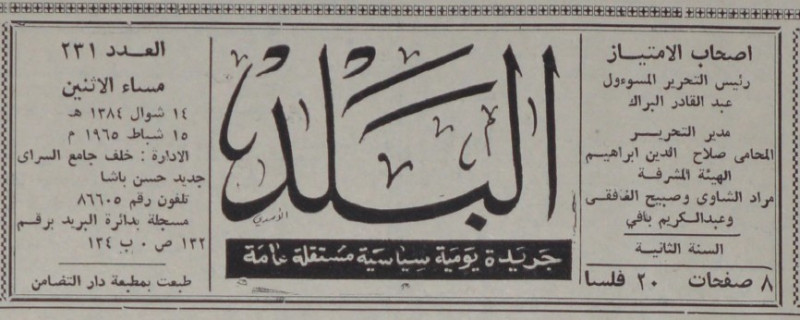 اصحاب الامتياز
رئيس التحرير المسوءول
عبد القادر البراك
مدير التحرير
المحامى صلاح الدين ابراهيم
الهيئة المشرفة
مراد الشاوى وصبيح الغافقى
وعبدالكريم بافي
السنة الثانية
٨ صفحات ٢٠ فلسا
البلد
الأسدي
جريدة يومية سياسية مستقلة عامة
العدد ٢٣١
مساء الاثنين
١٤ شوال ١٣٨٤ هـ
١٥ شباط ١٩٦٥ م
الادارة : خلف جامع السراى
جديد حسن باشا
تلفون رقم ٨٦٦٠٥
مسجلة بدائرة البريد برقم
١٣٢ ص ٠ ب ١٣٤
طبعت بمطبعة دار التضامن